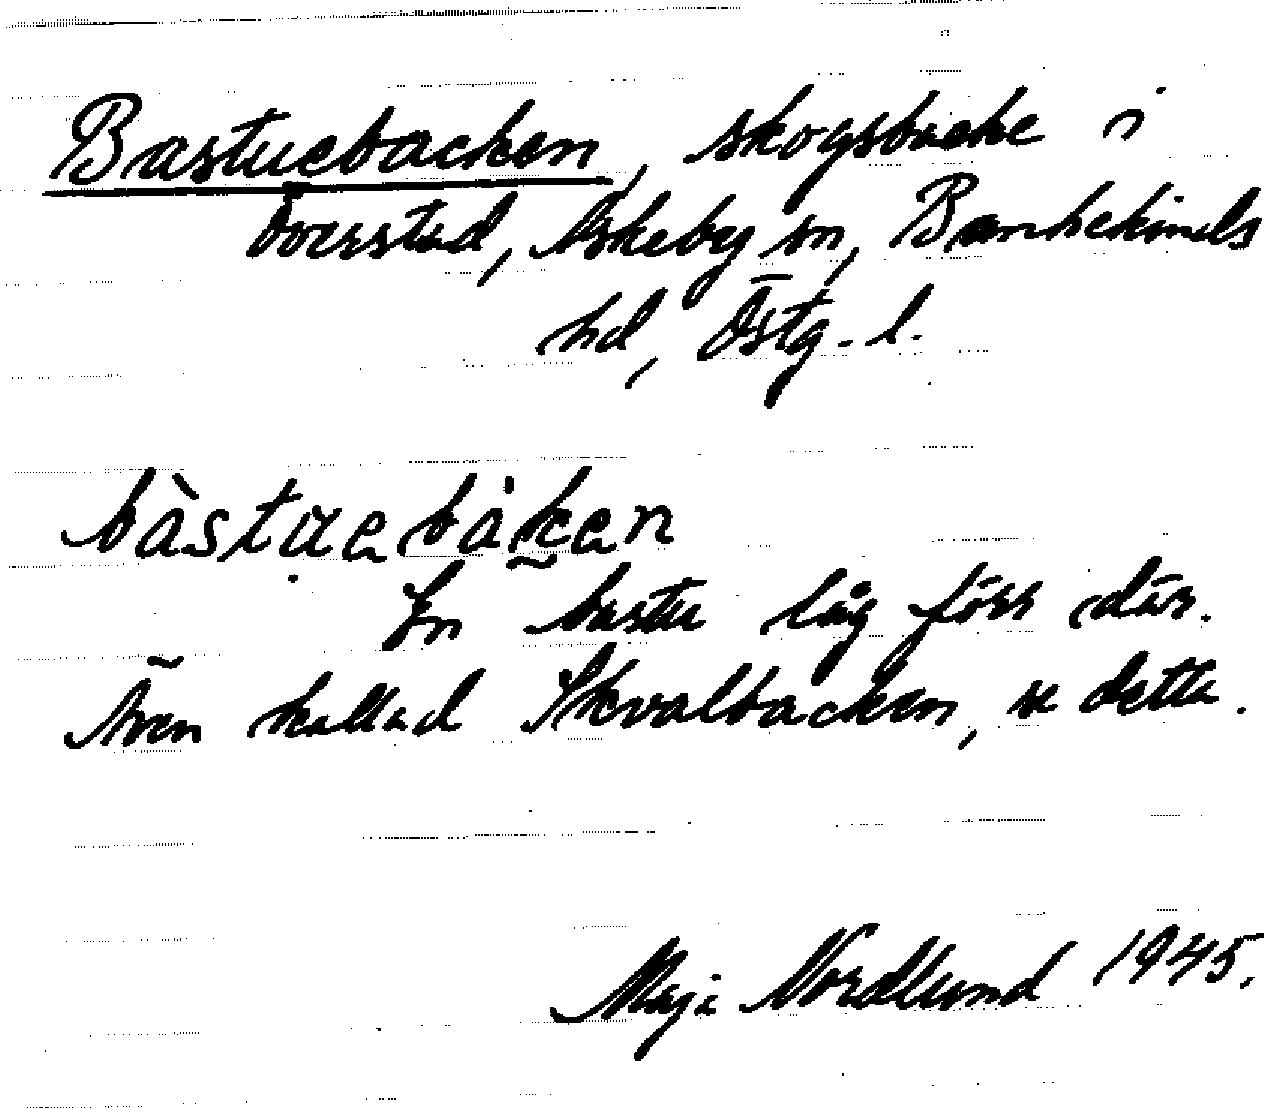 Bastuebacken, skogsbacke i
Överstad, Askeby sn, Bankekinds
hd, Östg. l.
bàstuebáken
En bastu låg förr där.
Även kallad Skvalbacken, se detta.
Maja Nordlund 1945.